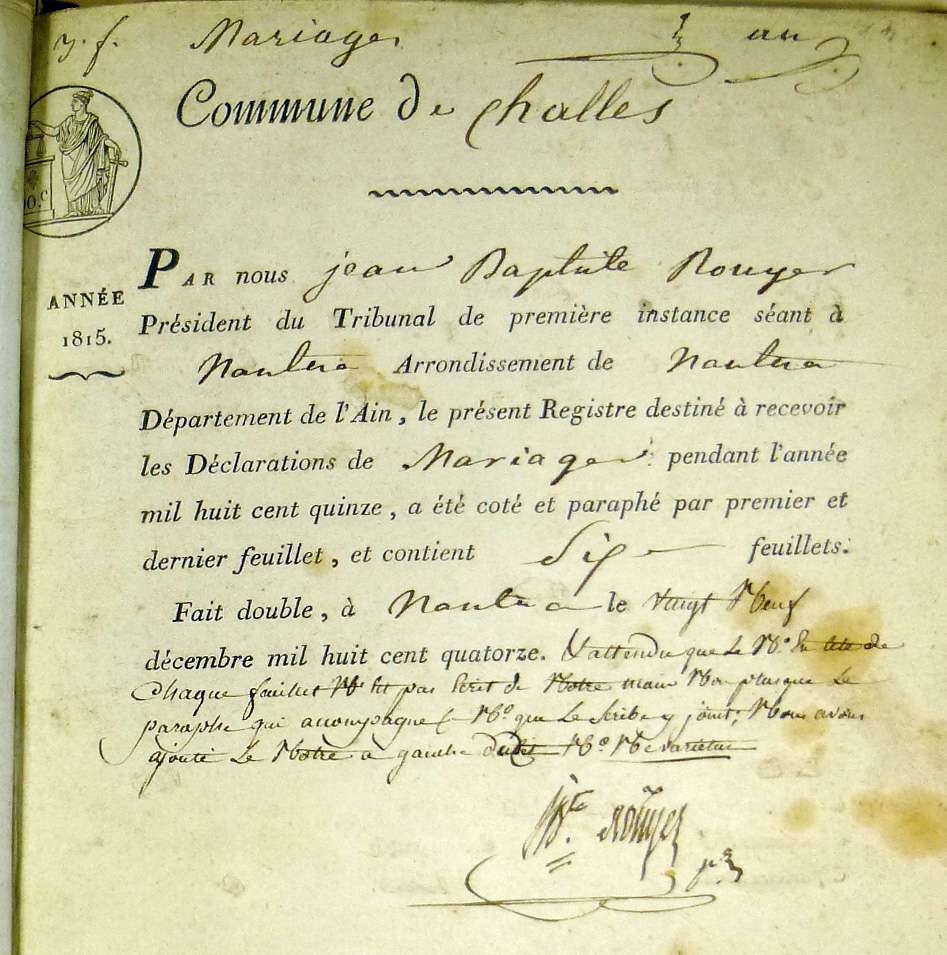 Mariages
Commune de Challes
ANNÉE
1815.
PAR nous jean Baptiste Rouyer
Président du Tribunal de première instance séant à
Nantua Arrondissement de Nantua
Département de l'Ain, le présent Registre destiné à recevoir
les Déclarations de Mariages pendant l'année
mil huit cent quinze, a été coté et paraphé par premier et
dernier feuillet, et contient Six feuillets.
Fait double, à Nantua le vingt Neuf
décembre mil huit cent quatorze. Et attendu que Le N.o En tete de
Chaque feuillet N'est pas Ecrit de Notre main Non plus que Le
paraphe qui accompagne ce N.o que Le Scribe y joint; Nous avons
ajouté Le Notre a gauche dudit N.o Ne varietur
Rouyer